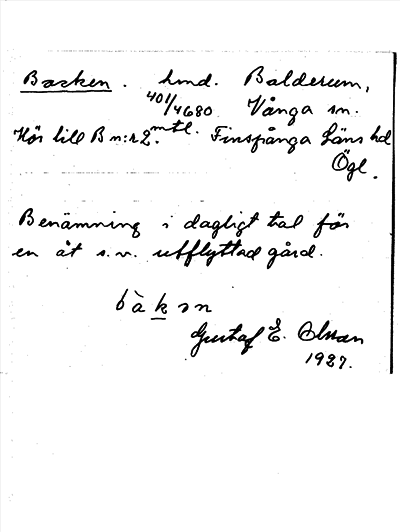 Backen. hmd. Balderum,
401/4680 Vånga sn.
Hör till B n:r 2. mtl. Finspånga Läns hd
Ögl.
Benämning i dagligt tal för
en åt s.v. utflyttad gård.
bàkən
Gustaf E. Olsson
1927.